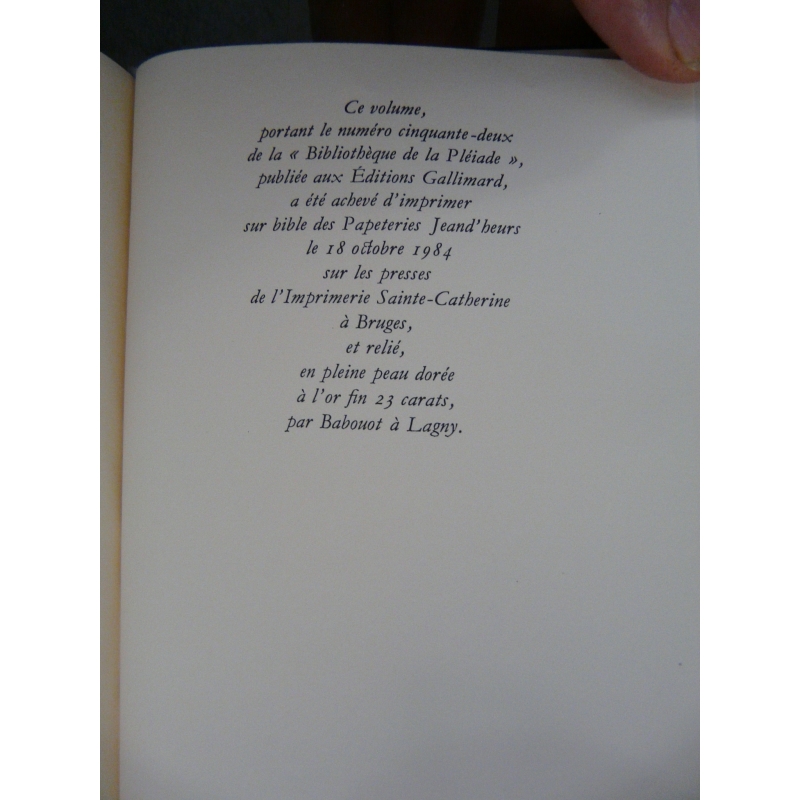 Ce volume,
portant le numéro cinquante-deux
de la « Bibliothèque de la Pléiade »,
publiée aux Éditions Gallimard,
a été achevé d'imprimer
sur bible des Papeteries Jeand'heurs
le 18 octobre 1984
sur les presses
de l'Imprimerie Sainte-Catherine
à Bruges,
et relié,
en pleine peau dorée
à l'or fin 23 carats,
par Babouot à Lagny.